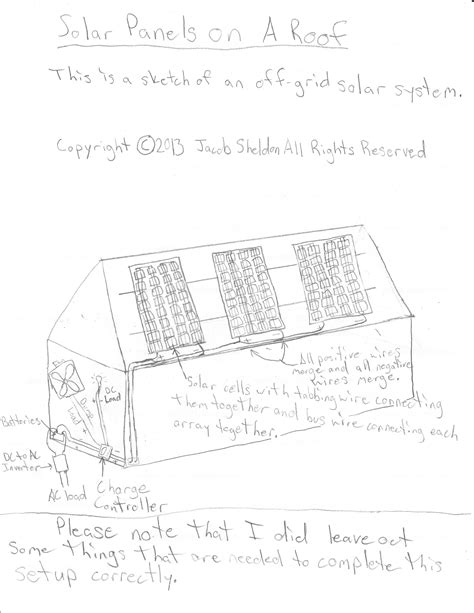 Solar Panels on A Roof
This is a sketch of an off-grid solar system.
Copyright ©2013 Jacob Sheldon All Rights Reserved
All positive wires
merge and all negative
wires merge.
Solar cells with tabbing wire connecting
them together and bus wire connecting each
array together.
DC
Load
Dump
Load
Batteries
DC to AC
Inverter
AC load
Charge
Controller
Please note that I did leave out
Some things that are needed to complete this
setup correctly.